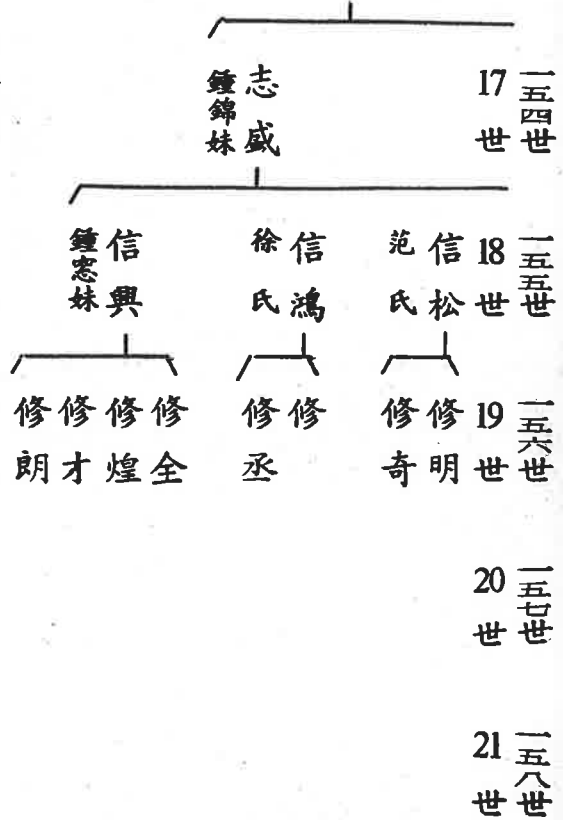 一五四世
17世
志盛
鍾錦妹
一五五世
18世
信松
范氏
信鴻
徐氏
信興
鍾窓妹
一五六世
19世
修明
修奇
修
修丞
修全
修煌
修才
修朗
一五七世
20世
一五八世
21世